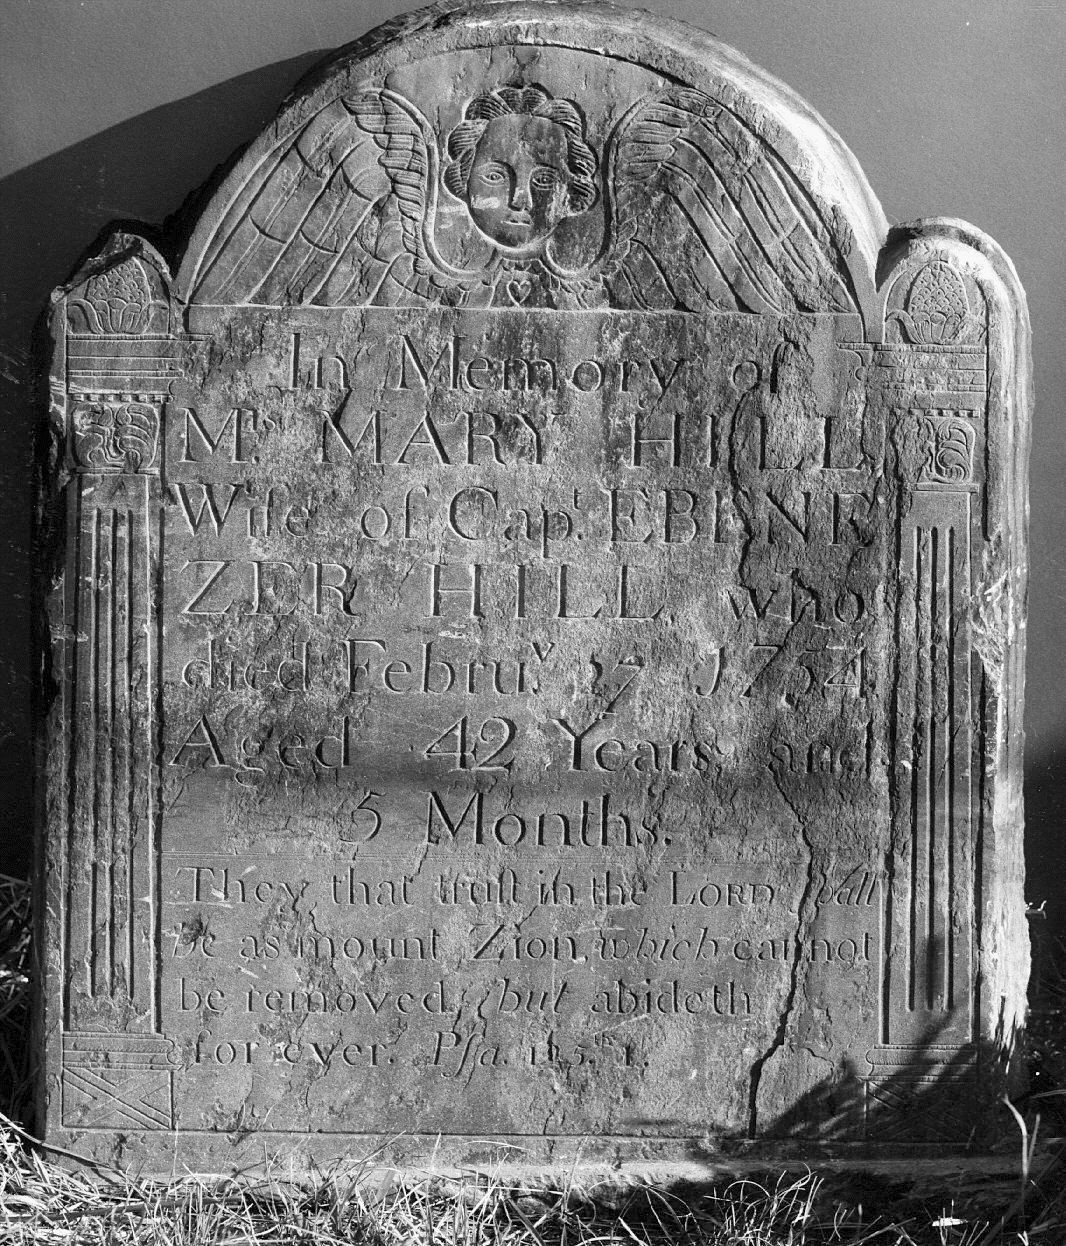 In Memory of
M.rs MARY HILL
Wife of Cap.t EBENE
ZER HILL, Who
died Febru.y 1754
Aged 42 Years and
5 Months.
They that truſt in the LORD ſhall
be as mount Zion, which cannot
be removed, but abideth
for ever. Pſa. 1.